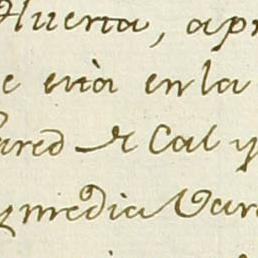 Huerta, apr
e està en la
Pared de Cal y
y media Vara